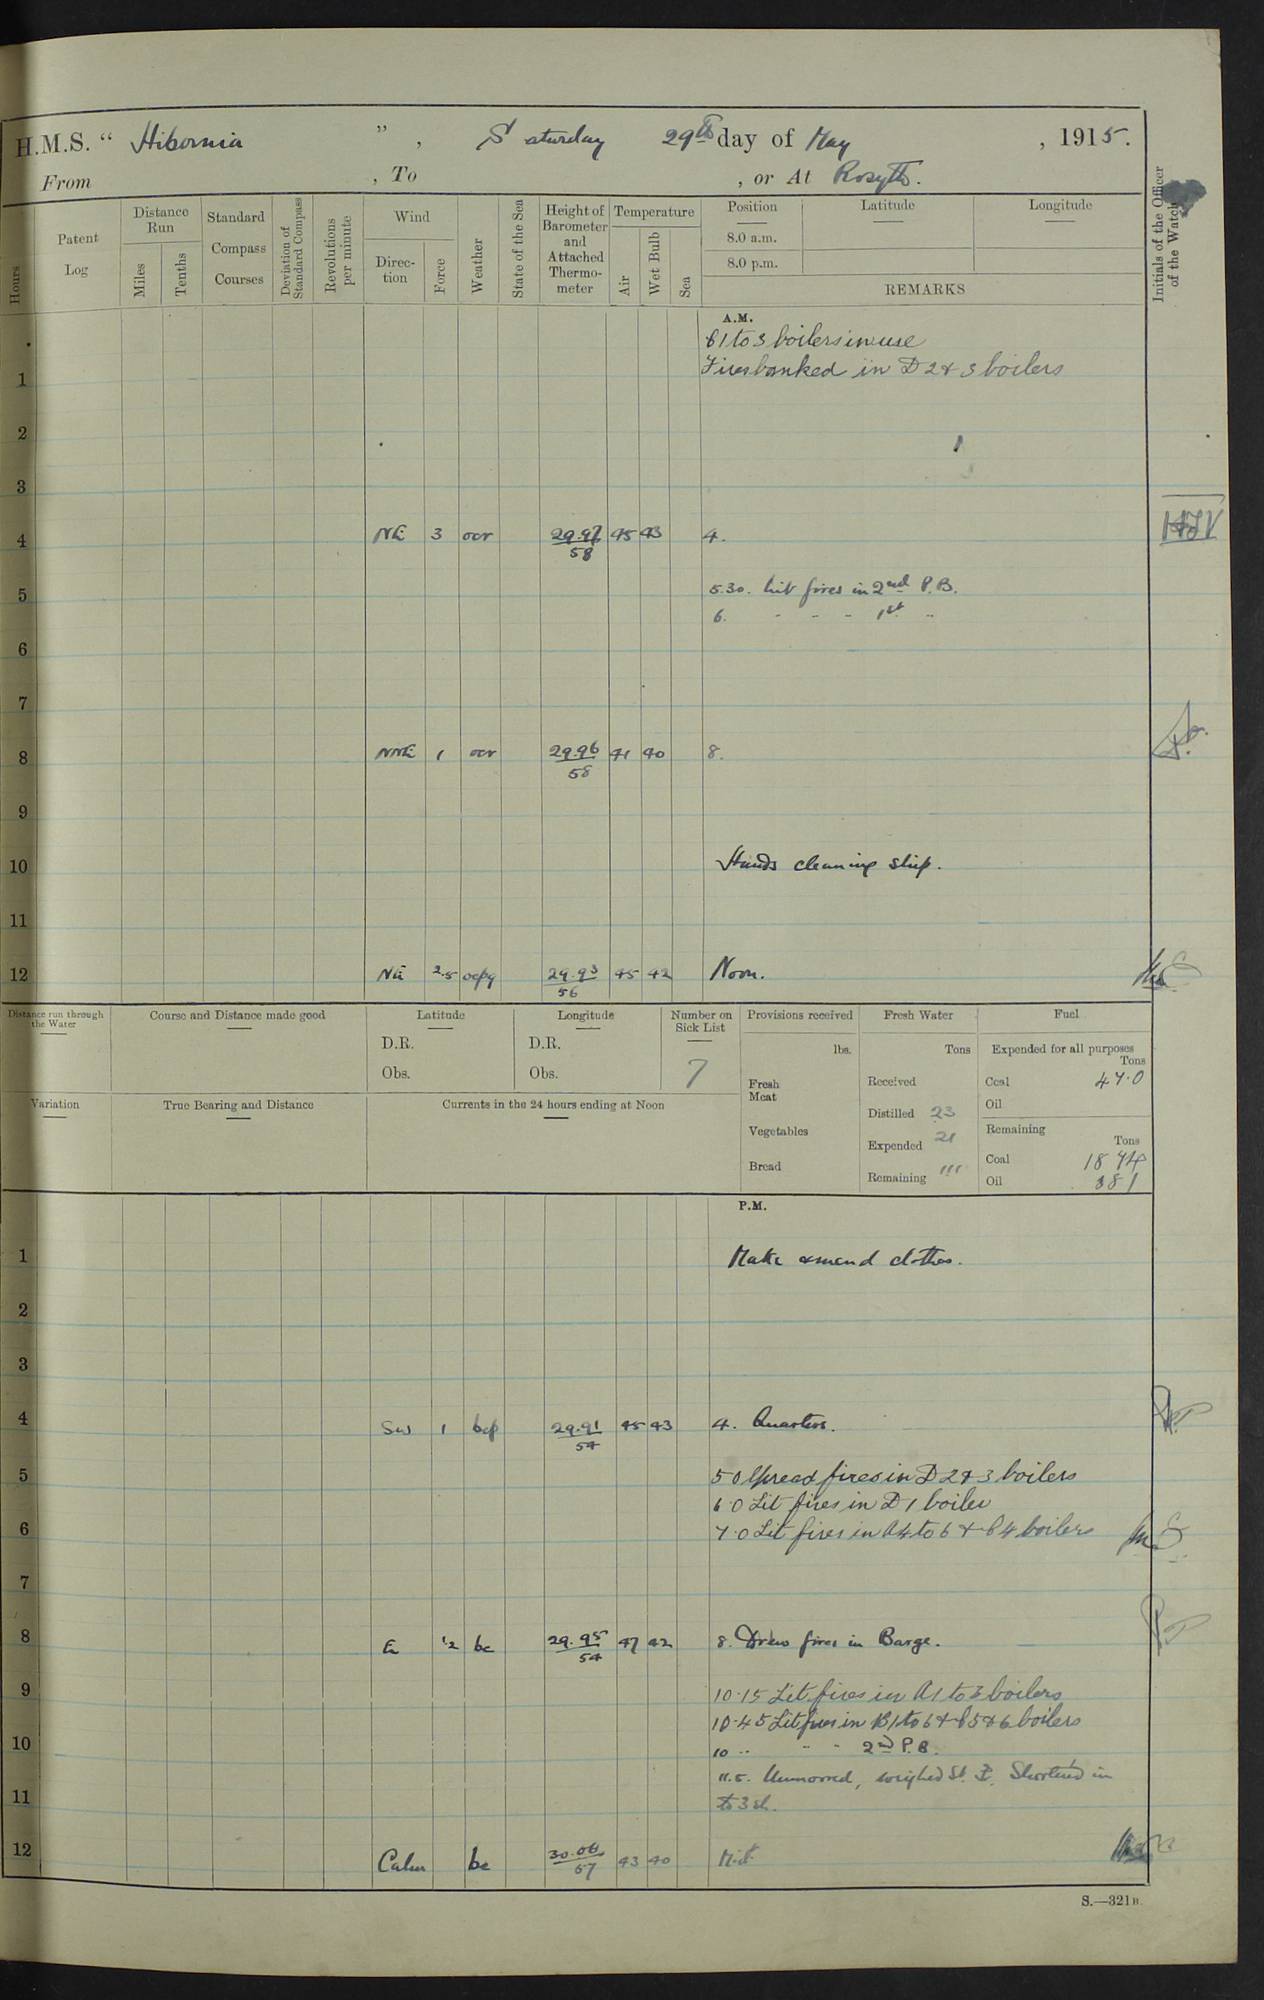 H.M.S. “ Hibernia ” , Saturday 29th day of May , 1915.
From , To , or At Rosyth.
Hours
Patent Log
Distance Run
Miles
Tenths
Standard Compass Courses
Deviation of Standard Compass
Revolutions per minute
Wind
Direction
Force
Weather
State of the Sea
Height of Barometer and Attached Thermometer
Temperature
Air
Wet Bulb
Sea
Position
Latitude
Longitude
8.0 a.m.
8.0 p.m.
REMARKS
Initials of the Officer of the Watch
A.M.
C1 to 3 boilers in use
1 Fires banked in D 2 & 3 boilers
2
3
4 NE 3 ocr 29.97 45 43 4.
58
5 5.30. Lit fires in 2nd P.B.
6. - - - 1st ..
6
7
8 NNE 1 ocr 29.96 41 40 8.
58
9
10 Hands cleaning ship.
11
12 NE 2.5 ocpq 29.93 45 42 Noon.
56
Distance run through the Water
Course and Distance made good
Latitude
Longitude
Number on Sick List
Provisions received
Fresh Water
Fuel
D.R.
D.R.
lbs.
Tons
Expended for all purposes
Tons
Obs.
Obs.
7
Fresh Meat
Received
Coal 47.0
Oil
Variation
True Bearing and Distance
Currents in the 24 hours ending at Noon
Distilled 23
Vegetables
Expended 21
Remaining
Tons
Bread
Coal 1874
Remaining 111
Oil 381
P.M.
1 Make & mend clothes.
2
3
4 SW 1 bcp 29.91 45 43 4. Quarters.
54
5 5.0 Spread fires in D 2 & 3 boilers
6.0 Lit fires in D 1 boiler
6 7.0 Lit fires in A4 to 6 & C4 boilers
7
8 E 1/2 bc 29.95 47 42 8. Drew fires in Barge.
54
9 10.15 Lit fires in A1 to 3 boilers
10.45 Lit fires in B1 to 6 & C5 & 6 boilers
10 10 .. .. - 2nd P.B.
11.5. Unmoored, weighed St. Shortened in
11 to 3 sh.
12 Calm bc 30.00 43 40 Midt.
57
S.—321B.